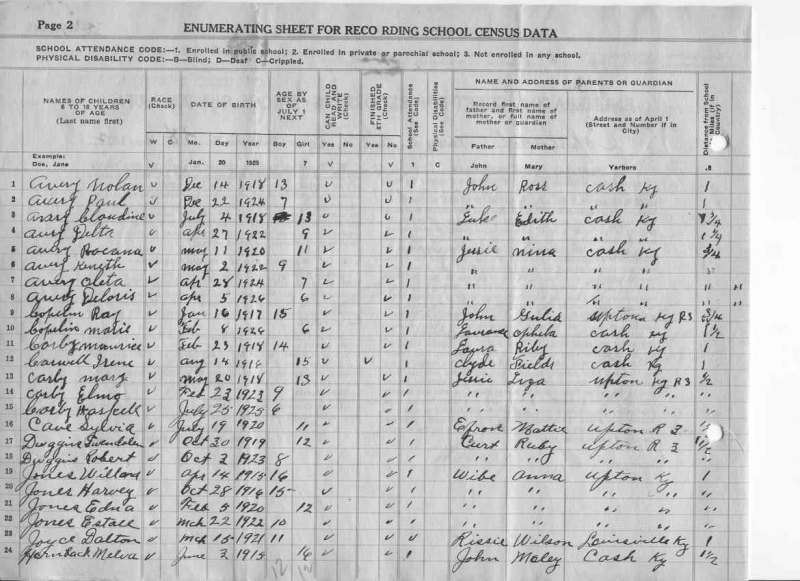 Page 2
ENUMERATING SHEET FOR RECO RDING SCHOOL CENSUS DATA
SCHOOL ATTENDANCE CODE:—1. Enrolled in public school; 2. Enrolled in private or parochial school; 3. Not enrolled in any school.
PHYSICAL DISABILITY CODE:—B—Blind; D—Deaf C—Crippled.
NAMES OF CHILDREN 6 TO 18 YEARS OF AGE (Last name first) RACE (Check) W C DATE OF BIRTH Mo. Day Year AGE BY SEX AS OF JULY 1 NEXT Boy Girl CAN CHILD READ AND WRITE (Check) Yes No FINISHED 8TH GRADE (Check) Yes No School Attendance (See Code) Physical Disabilities (See Code) NAME AND ADDRESS OF PARENTS OR GUARDIAN Record first name of father and first name of mother, or full name of mother or guardian Father Mother Address as of April 1 (Street and Number if in City) Distance from School Miles (if in Country)
Example: Doe, Jane V Jan. 20 1925 7 V V 1 C John Mary Yerbore .8
1 Avery Nolan v Dec 14 1918 13 v v 1 John Ross Cash Ky 1
2 Avery Paul v Dec 22 1924 7 v v 1 " " " " 1
3 Claudine v July 4 1918 13 v v 1 Edith Cash Ky 3/4
4 Avery Delta v Apr 27 1922 9 v v 1 " " " " 1 1/4
5 Avery v May 11 1920 11 v v 1 nina Cash Ky 3/4
6 Avery v May 2 1922 9 v v 1 " " " "
7 Avery Oleta v Apr 28 1924 7 v v 1 " " " " " "
8 Avery Deloris v Apr 5 1926 6 v v 1 " " " " " "
9 Ray v Jan 16 1917 15 v v 1 John Uptona Ky R3 3/4
10 v Feb 8 1926 6 v v 1 Ophelia Cash Ky 1 1/2
11 Corby Maurice v Feb 23 1918 14 v v 1 Laura Riley Cash Ky 1
12 Irene v Aug 14 1916 15 v v 1 Clyde Fields Cash Ky 1
13 Corby Mary v May 20 1918 13 v v 1 Liza Upton Ky R3 1/2
14 Corby Elmo v Feb 23 1923 9 v v 1 " " " " "
15 Corby Haskell v July 25 1925 6 v v 1 " " " " "
16 Cave Sylvia v July 19 1920 11 v v 1 Mattie Upton R 3
17 Duggins v Oct 30 1919 12 v v 1 Curt Ruby Upton R 3
18 Duggins Robert v Oct 2 1923 8 v v 1 " " " "
19 Jones Willard v Apr 14 1915 16 v v 1 Wibe Anna Upton Ky 1
20 Jones Harvey v Oct 28 1916 15 v v 1 " " " " "
21 Jones Edna v Feb 5 1920 12 v v 1 " " " " "
22 Jones Estall v Mch 22 1922 10 v v 1 " " " " "
23 Joyce Dalton v Mch 15 1921 11 v v Wilson Louisville Ky 1
24 Hornback Melva v June 2 1915 16 v v 1 John Cash Ky 1 1/2